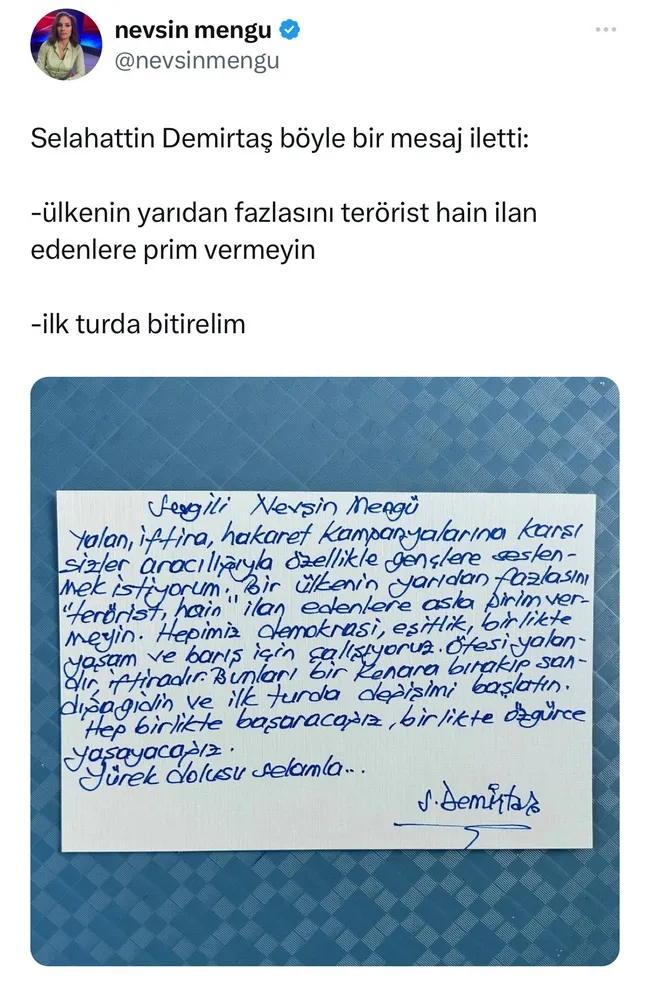 nevsin mengu
@nevsinmengu
Selahattin Demirtaş böyle bir mesaj iletti:
-ülkenin yarıdan fazlasını terörist hain ilan
edenlere prim vermeyin
-ilk turda bitirelim
Sevgili Nevşin Mengü
Yalan, iftira, hakaret kampanyalarına karşı
sizler aracılığıyla özellikle gençlere seslen-
mek istiyorum. Bir ülkenin yarıdan fazlasını
"terörist, hain" ilan edenlere asla pirim ver-
meyin. Hepimiz demokrasi, eşitlik, birlikte
yaşam ve barış için çalışıyoruz. Ötesi yalan-
dır, iftiradır. Bunları bir kenara bırakıp san-
dığa gidin ve ilk turda değişimi başlatın.
Hep birlikte başaracağız, birlikte özgürce
yaşayacağız.
Yürek dolusu selamla...
S. Demirtaş